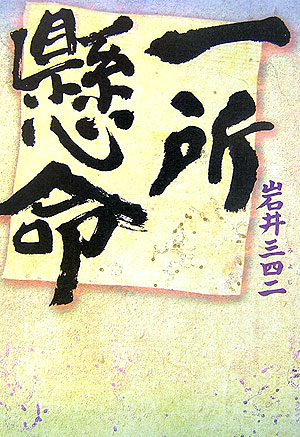 一所
懸命
岩井三四二